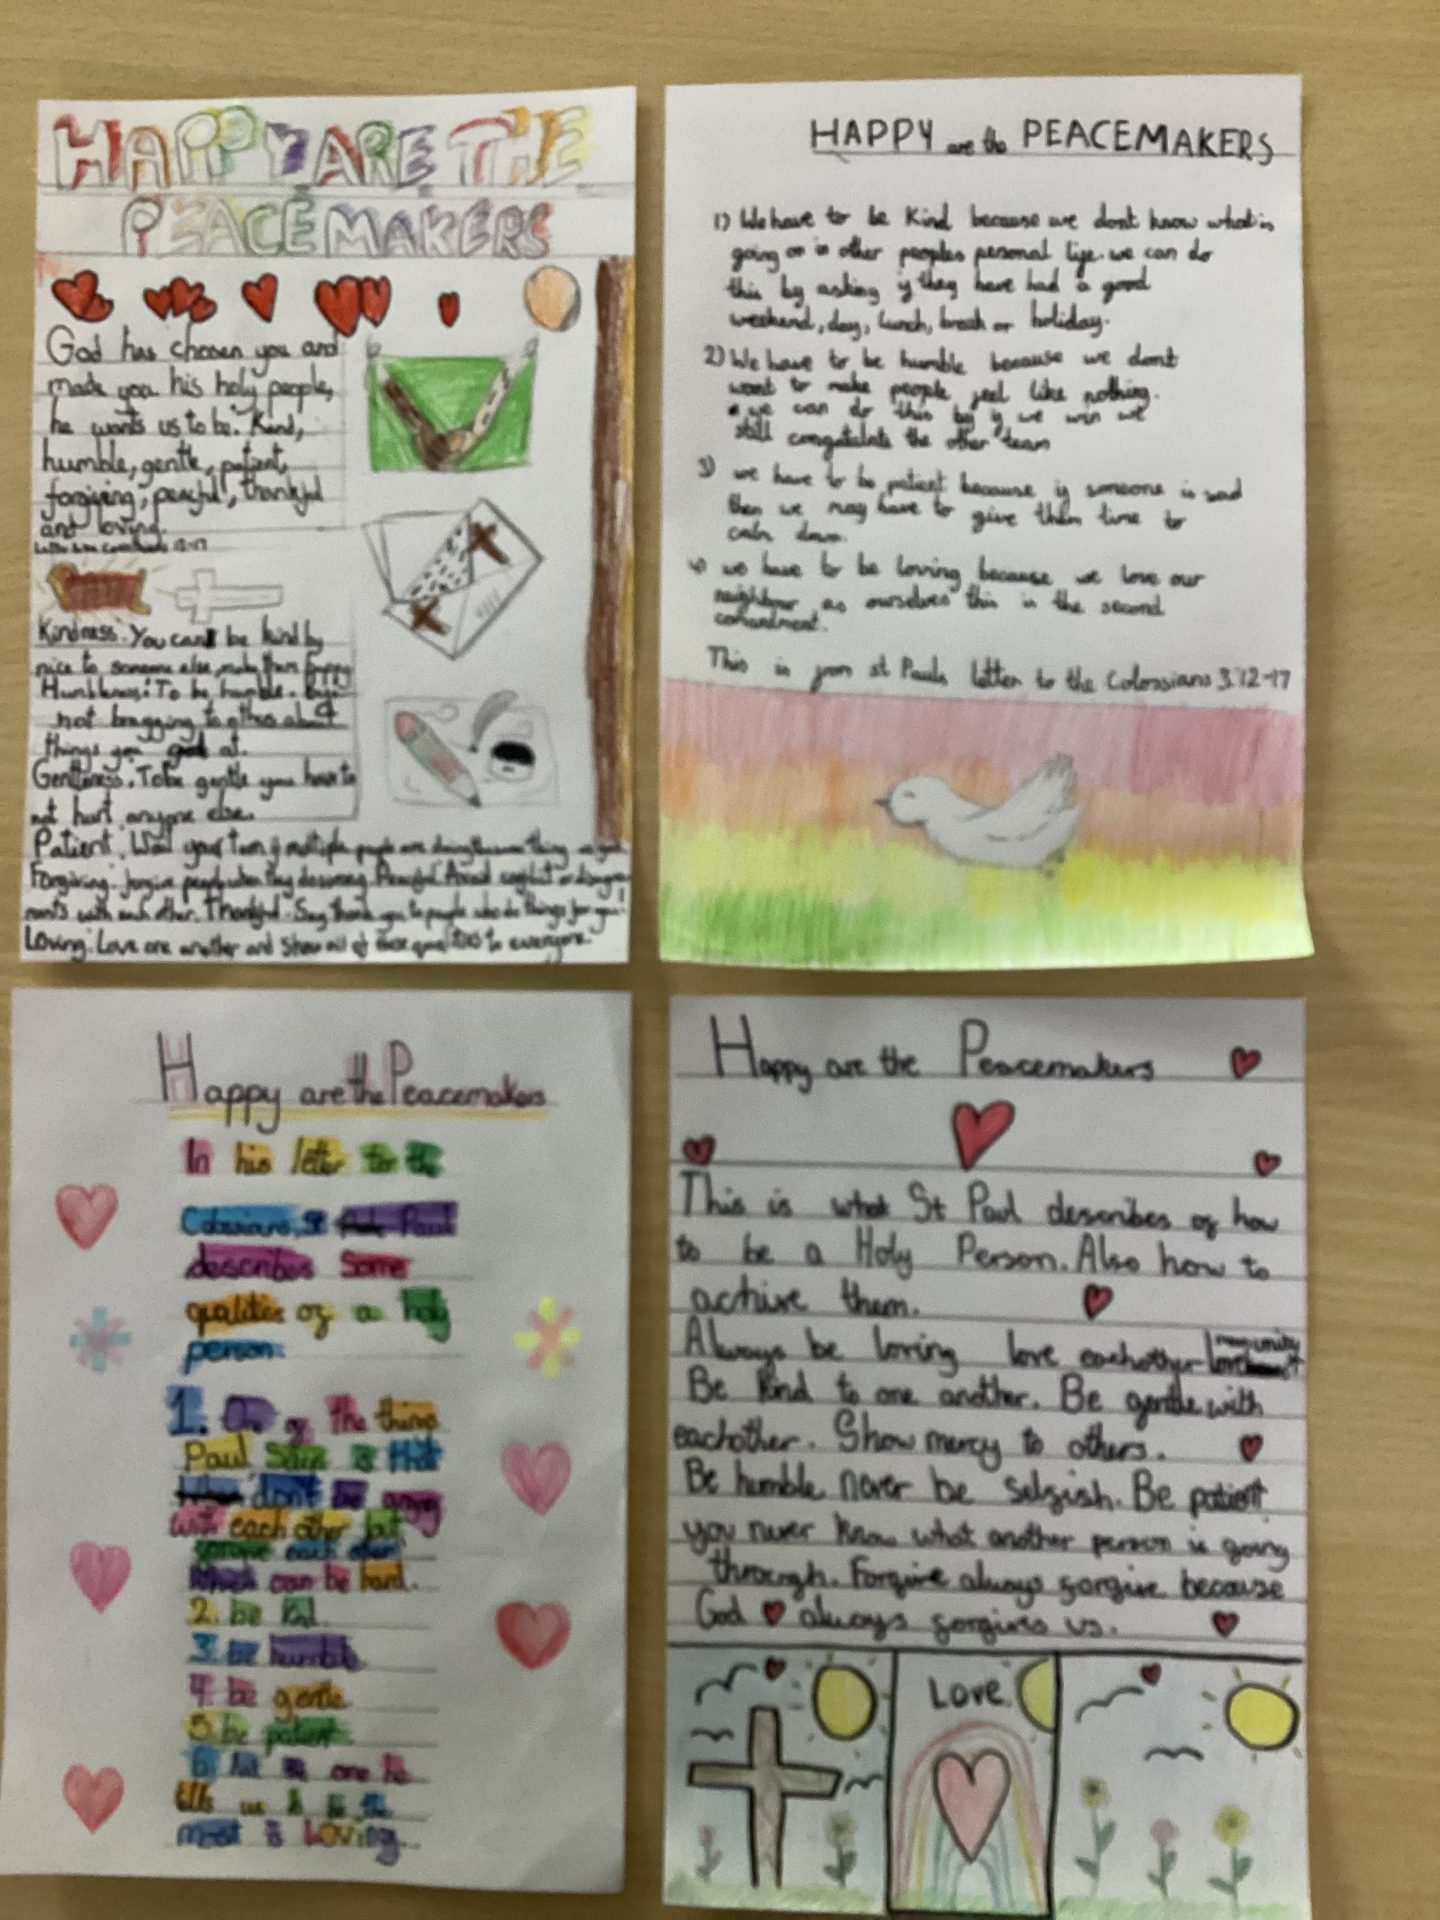 HAPPY ARE THE
PEACEMAKERS
God has chosen you and
made you his holy people,
he wants us to be. Kind,
humble, gentle, patient,
forgiving, peacful, thankful
and loving.
Kindness. You can be kind by
nice to someone else, make them happy
Humbleness: To be humble.
not bragging to others about
things you good at.
Gentleness. To be gentle you have to
not hurt anyone else.
Patient. Wait your turn if multiple people are doing the same thing as you
Forgiving: forgive people when they do wrong. Peaceful: Avoid conflict or disagree
ments with each other. Thankful: Say thank you to people who do things for you!
Loving: Love one another and show all of these qualities to everyone.
HAPPY are the PEACEMAKERS
1) We have to be Kind because we dont know what is
going on in other peoples personal life. we can do
this by asking if they have had a good
weekend, day, lunch, break or holiday.
2) We have to be humble because we dont
want to make people feel like nothing.
we can do this by if we win we
still congatulate the other team
3) we have to be patient because if someone is sad
then we may have to give them time to
calm down.
4) we have to be loving because we love our
neighbour as ourselves this is the second
comandment.
This is from st Pauls letter to the Colossians 3:12-17
Happy are the Peacemakers
In his letter to the
Colossians, St Paul
describes Some
qualities of a holy
person.
1. One of the things
Paul Said is that
don't be angry
with each other but
forgive each other
Which can be hard.
2. be kind
3. be humble
4. be gentle
5. be patient
6. one he
tells us to be the
most is Loving
Happy are the Peacemakers
This is what St Paul describes of how
to be a Holy Person. Also how to
achive them.
Always be loving love eachother
Be Kind to one another. Be gentle with
eachother. Show mercy to others.
Be humble never be selfish. Be patient
you never know what another person is going
through. Forgive always forgive because
God always forgives us.
Love